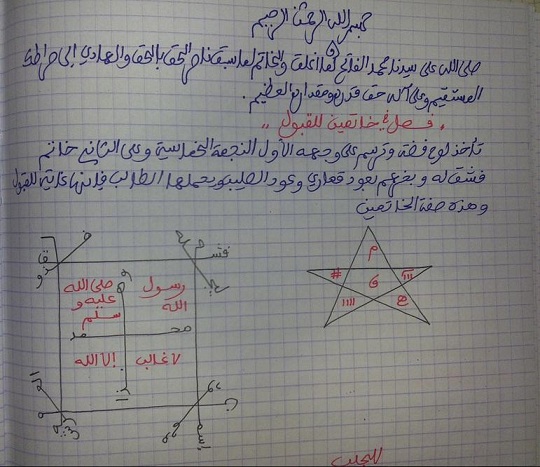 بسم الله الرحمن الرحيم
صلى الله على سيدنا محمد الفاتح لما اغلق والخاتم لما سبق ناصر الحق بالحق والهادي إلى صراطك
المستقيم وعلى آله حق قدره ومقداره العظيم .
، فصل في خاتمين للقبول ،،
تاخذ لوح فضة وترسم على وجهه الأول النجمة الخماسية وعلى الثاني خاتم
فشقله وبخرهم بعود قماري وعود الصليب ويحملها الطالب فإنها غاية للقبول
وهذه صفة الخاتمين
رسول الله
صلى الله عليه و سلم
محمد
لا غالب
إلا الله
م
#
ق
III
IIII
للجلب